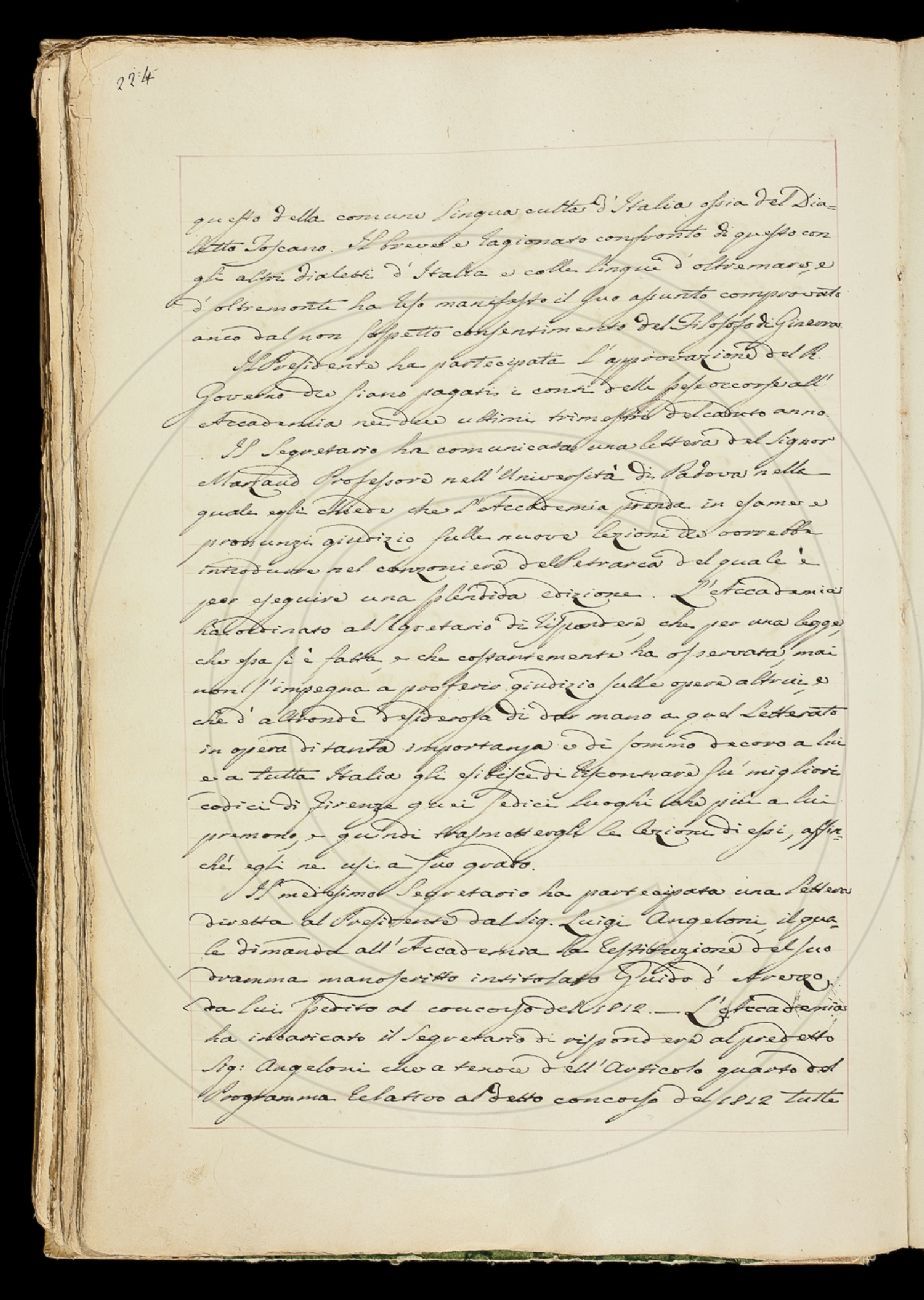 224
questo della comune lingua culta d'Italia ossia del Dia=
letto Toscano. Il breve e ragionato confronto di questo con
gli altri dialetti d'Italia e colle lingue d'oltremare, e
d'oltremonte ha reso manifesto il suo assunto comprovato
anco dal non sospetto consentimento del Filosofo di Ginevra.
Il Presidente ha partecipata l'approvazione del R.
Governo che siano pagati i conti delle spese occorse all'
Accademia nei due ultimi trimestri del caduto anno.
Il Segretario ha comunicata una lettera del Signor
Marsand Professore nell'Università di Padova nella
quale egli chiede che l'Accademia prenda in esame e
pronunzi giudizio sulle nuove lezioni che vorrebbe
introdurre nel canzoniere del Petrarca del quale è
per eseguire una splendida edizione. L'Accademia
ha ordinato al Segretario di rispondere, che per una legge,
che essa si è fatta, e che costantemente ha osservata, mai
non s'impegna a proferir giudizio sulle opere altrui, e
che d'altronde desiderosa di dar mano a quel Letterato
in opera di tanta importanza e di sommo decoro a lui
e a tutta Italia gli esibisce di riscontrare su' migliori
codici di Firenze quei sedici luoghi che più a lui
premono, e quindi trasmettergli le lezioni di essi, affin=
chè egli ne usi a suo grado.
Il medesimo Segretario ha partecipata una lettera
diretta al Presidente dal Sig. Luigi Angeloni, il qua=
le dimanda all'Accademia la restituzione del suo
dramma manoscritto intitolato Guido d'Arezzo,
da lui spedito al concorso del 1812. — L'Accademia
ha incaricato il Segretario di rispondere al predetto
Sig: Angeloni che a tenore dell'Articolo quarto del
Programma relativo al detto concorso del 1812 tutte